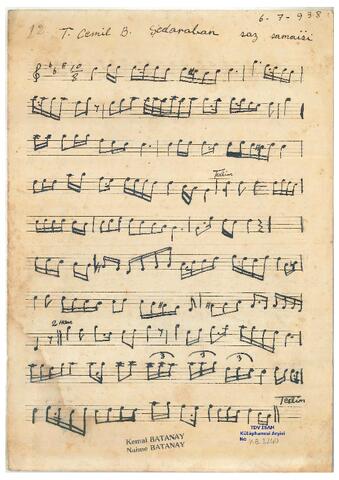 6-7-938
12 T. Cemil B. Şedaraban saz samaisi
10
8
Teslim
2 Hane
3 3 3
Teslim
Kemal BATANAY
Naime BATANAY
TDV İSAM
Kütüphanesi Arşivi
No